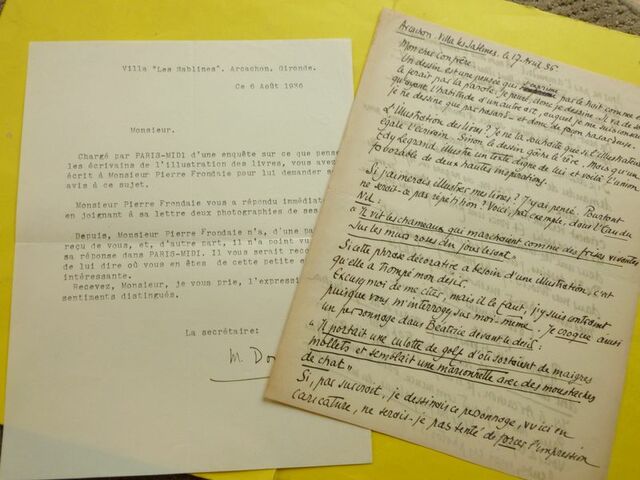 Villa "Les Sablines". Arcachon. Gironde.
Ce 6 Août 1936
Monsieur.
Chargé par PARIS-MIDI d'une enquête sur ce que pense
les écrivains de l'illustration des livres, vous avez
écrit à Monsieur Pierre Frondaie pour lui demander s
avis à ce sujet.
Monsieur Pierre Frondaie vous a répondu immédiat
en joignant à sa lettre deux photographies de ses
Depuis, Monsieur Pierre Frondaie n'a, d'une pa
reçu de vous, et, d'autre part, il n'a point vu
sa réponse dans PARIS-MIDI. Il vous serait reco
de lui dire où vous en êtes de cette petite e
intéressante.
Recevez, Monsieur, je vous prie, l'expressi
sentiments distingués.
La secrétaire:
M. Do
Arcachon. Villa les Sablines. le 17 Avril 36.
Mon cher confrère.
Un dessin est une pensée qui s'exprime par le trait comme e
le ferait par la parole. Je peux donc je dessine. Il va de s
qu'ayant l'habitude d'un autre art, auquel je me suis
je ne dessine que par hasard et donc de façon
L'illustration des livres? Je ne la souhaite que si l'illustrat
égale l'écrivain. Sinon le dessin gâche le titre. Mais qu'un
Edy Legrand illustre un texte digne de lui et voilà l'union
favorable de deux hautes inspirations.
Si j'aimerais illustrer mes livres? J'y ai pensé. Pourtant
ne serait-ce pas répétition? Voici, par exemple, dans l'Eau du
Nil:
"Il vit les chameaux qui marchaient comme des frises vivantes
sur les murs roses du jour levant"
Si cette phrase décorative a besoin d'une illustration, c'est
qu'elle a trompé mon désir.
Excusez moi de me citer, mais il le faut, j'y suis contraint
puisque vous m'interrogez sur moi-même. Je croque ainsi
un personnage dans Béatrice devant le désir:
"Il portait une culotte de golf d'où sortaient de maigres
mollets et semblait une marionnette avec des moustaches
de chat"
Si, par surcroît, je dessinais ce personnage, vu ici en
caricature, ne serais-je pas tenté de forcer l'impression